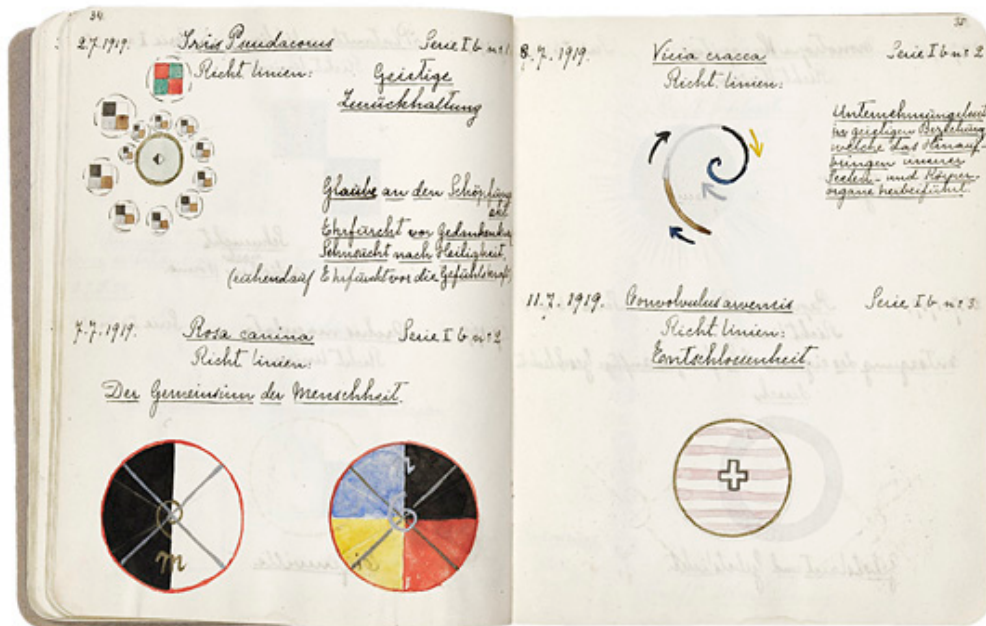 34
2.7.1919. Iris Pseudacorus Serie I b. nr 1
Richtlinien: Geistige
Zurückhaltung
Glaube an den Schöpfungs
akt
Ehrfurcht vor Gedankenkraft
Sehnsucht nach Heiligkeit.
(ruhend auf Ehrfurcht vor die Gefühlskraft)
7.7.1919. Rosa canina Serie I b. nr 2
Richtlinien:
Der Gemeinsinn der Menschheit.
m
8.7.1919. Vicia cracca Serie I b nr 2
Richtlinien:
Unternehmungslust
in geistigen Beziehung
welche das Hinauf-
bringen unserer
Seelen- und Körper-
organe herbeiführt.
11.7.1919. Convolvulus arvensis Serie I b. nr 3.
Richtlinien:
Entschlossenheit.